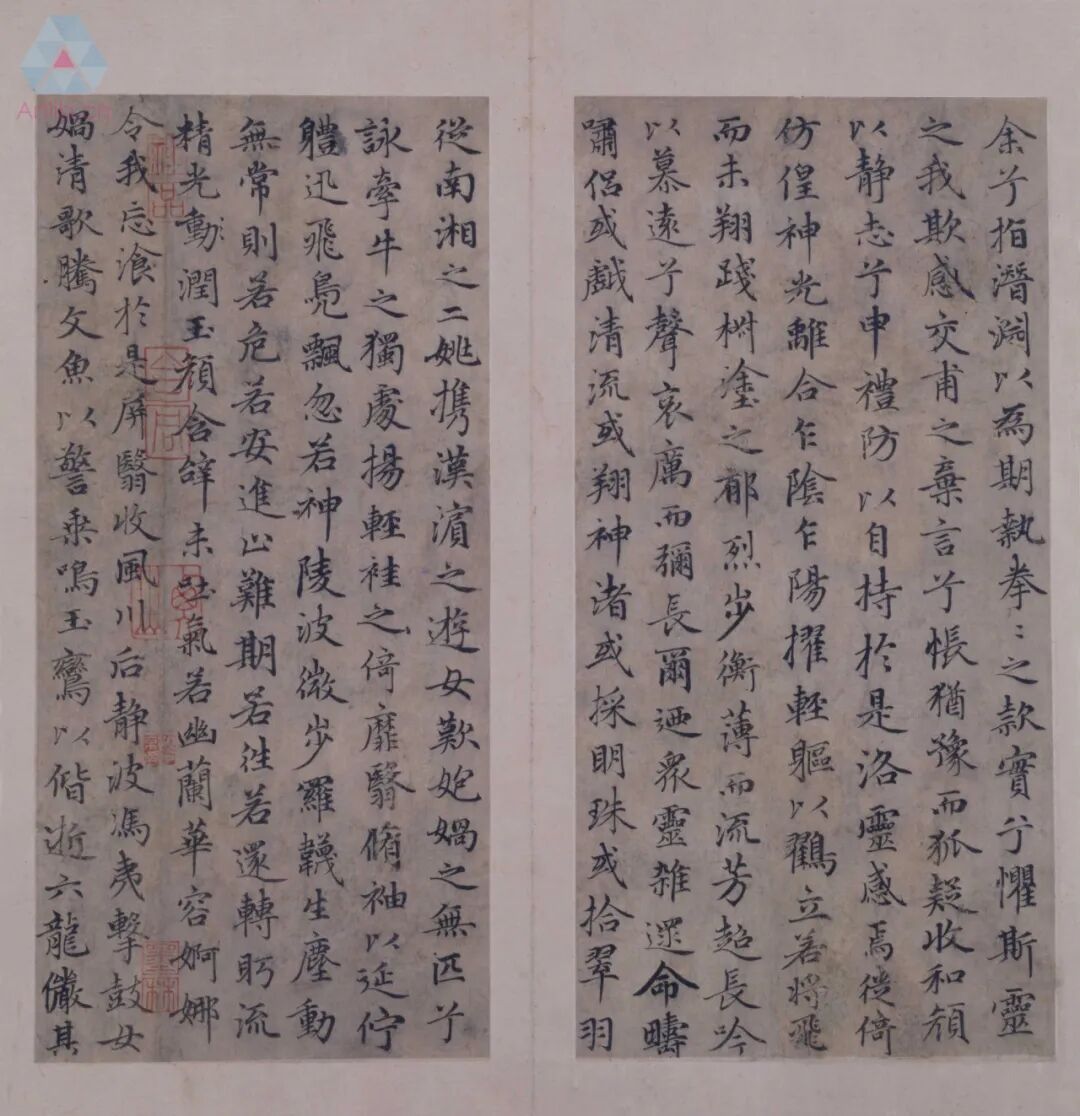 余兮指潛淵以為期執拳〻之款實兮懼斯靈
之我欺感交甫之棄言兮悵猶豫而狐疑收和顏
以静志兮申禮防以自持於是洛靈感焉徙倚
仿偟神光離合乍陰乍陽擢輕軀以鶴立若將飛
而未翔踐椒塗之郁烈步衡薄而流芳超長吟
以慕遠兮聲哀厲而彌長爾迺衆靈雜遝命疇
嘯侶或戲清流或翔神渚或採明珠或拾翠羽
從南湘之二姚携漢濱之遊女歎妑媧之無匹兮
詠牽牛之獨處揚輕袿之倚靡翳脩袖以延佇
軆迅飛鳧飄忽若神陵波微步羅韈生塵動
無常則若危若安進止難期若往若還轉眄流
精光動潤玉顏含辭未吐氣若幽蘭華容婀娜
令我忘飡於是屏翳收風川后静波馮夷擊鼓女
媧清歌騰文魚以警乘鳴玉鸞以偕逝六龍儼其